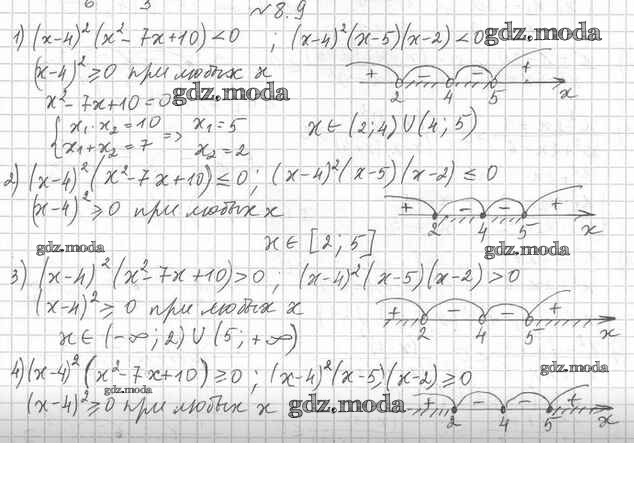 №8.9
1) (x-4)² (x²-7x+10) <0 ; (x-4)²(x-5)(x-2) <0 gdz.moda
(x-4)² ≥0 при любых x
+ - - +
2 4 5 x
x²-7x+10=0 gdz.moda
{x₁·x₂=10 => x₁=5
x₁+x₂=7 x₂=2
x∈(2;4)∪(4;5)
2) (x-4)² (x²-7x+10) ≤0; (x-4)²(x-5)(x-2) ≤ 0
(x-4)² ≥0 при любых x
+ - - +
2 4 5 x
gdz.moda x∈[2;5] gdz.moda
3) (x-4)² (x²-7x+10)>0 ; (x-4)²(x-5)(x-2)>0
(x-4)² ≥ 0 при любых x
+ - - +
2 4 5 x
x∈(-∞;2)∪(5;+∞)
4) (x-4)² (x²-7x+10) ≥0 ; (x-4)²(x-5)(x-2) ≥0 gdz.moda
gdz.moda
(x-4)² ≥0 при любых x gdz.moda
+ - - +
2 4 5 x